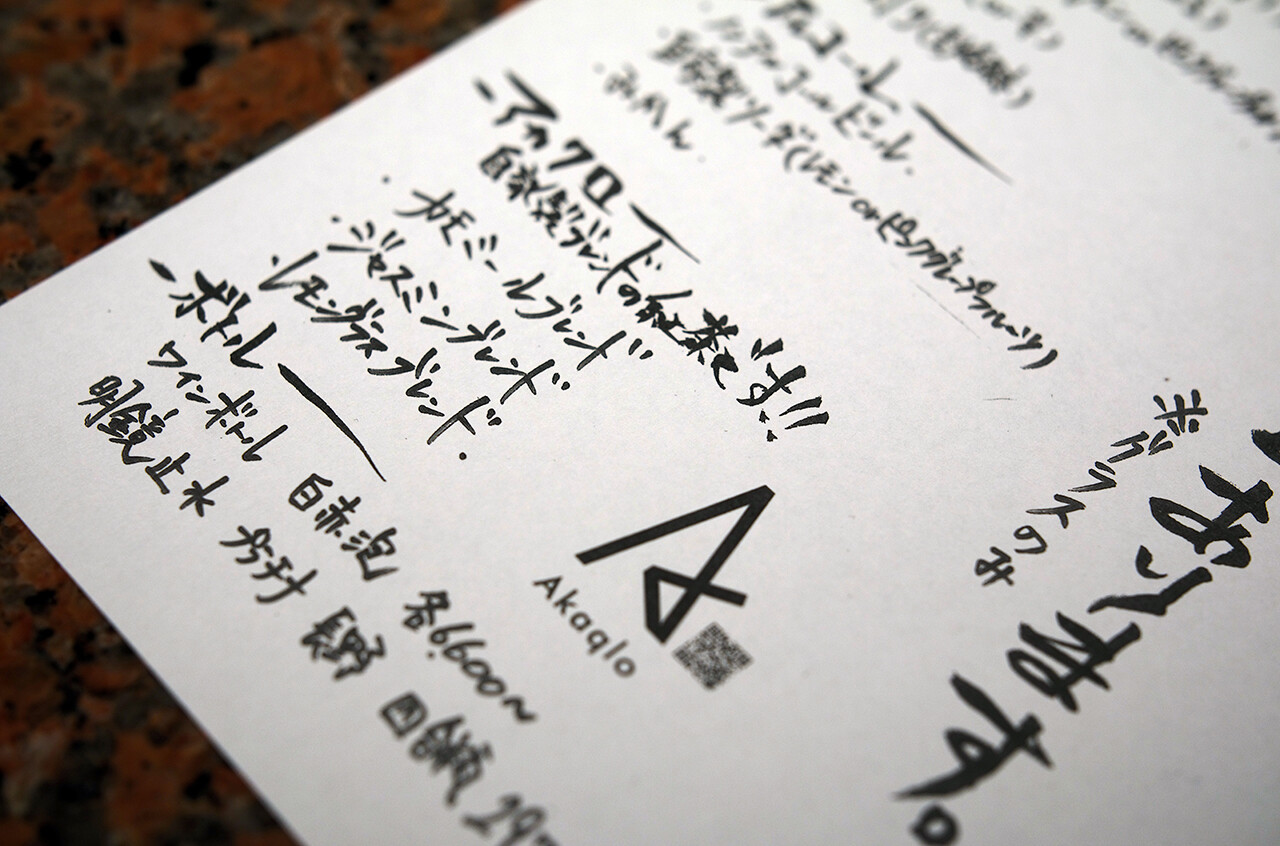 ノンアルコールビール.
自家製ソーダ(レモン or ピンクグレープフルーツ)
・みかん.
-アカクロー
自家製ブレンドの紅茶です!!
・カモミールブレンド
・ジャスミンブレンド
・レモングラスブレンド.
-ボトル
ワインボトル 白赤泡 各6.600~
明鏡止水 長野 四合瓶
Akaqlo
※グラスのみ
あります。